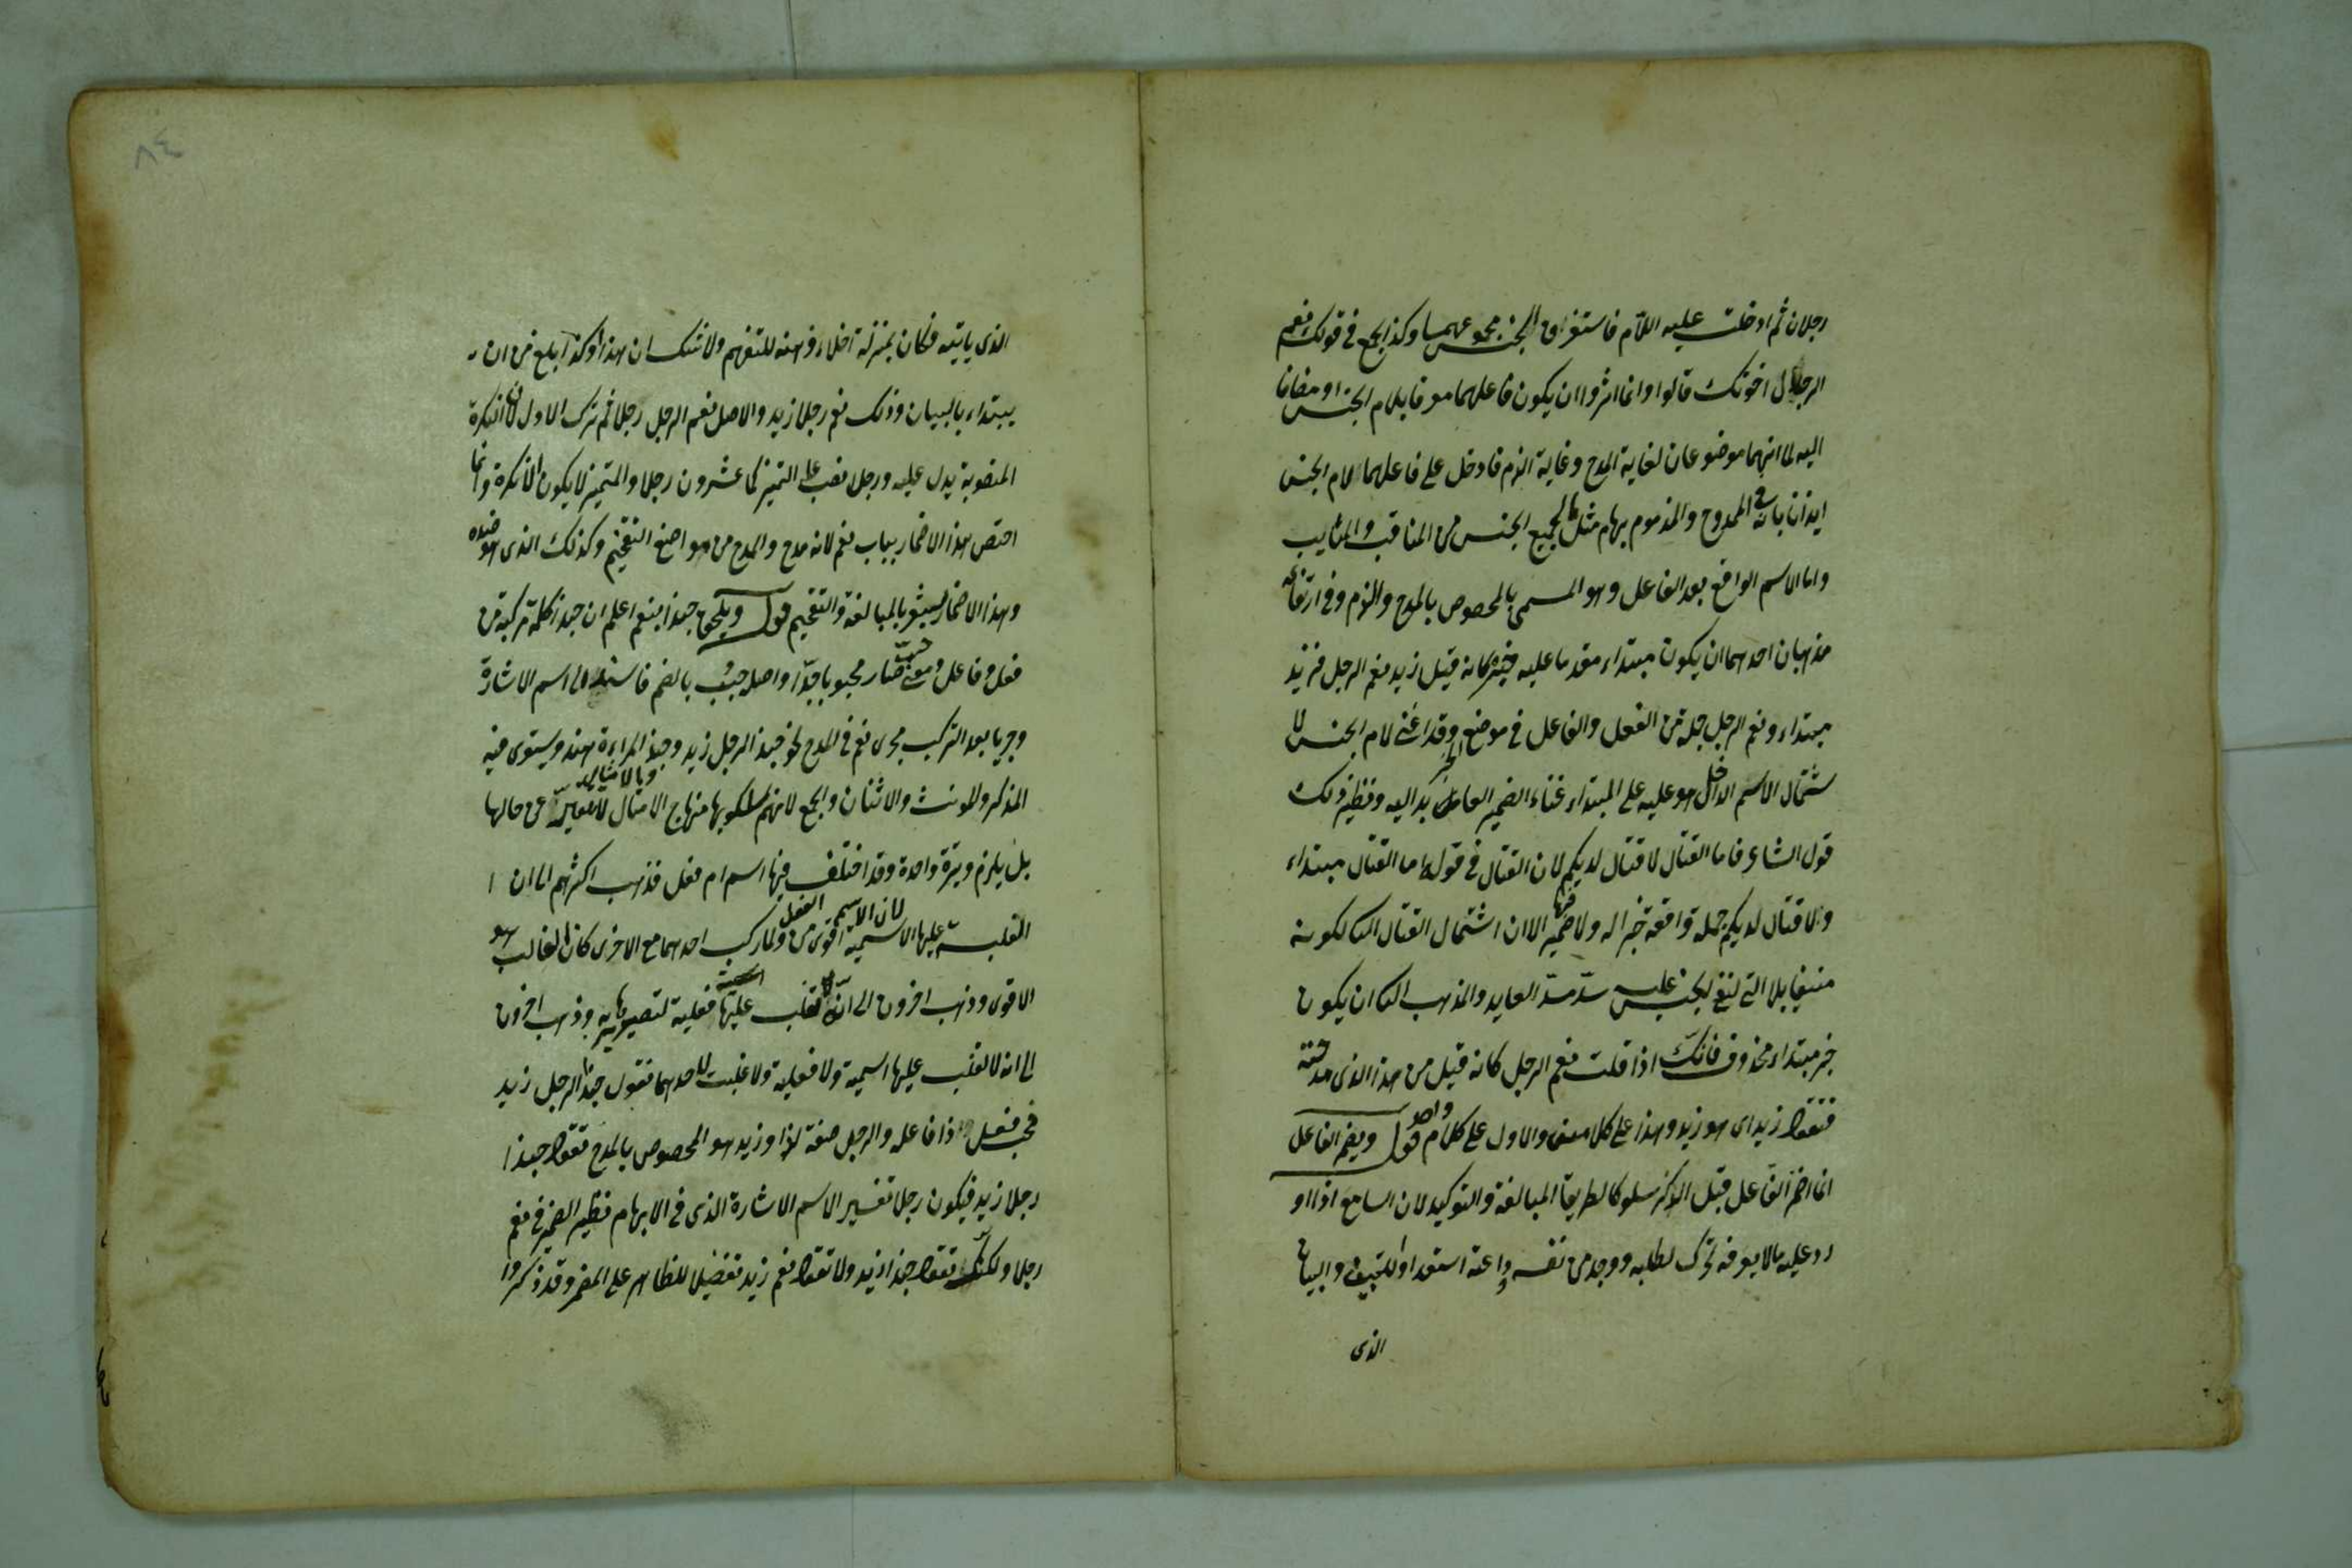 رجلان ثم ادخلت عليه اللام فاستغراق الجنس مجموعهما وكذا الجمع فى قولك نعم
الرجال اخوتك قالوا وانما اثروا ان يكون فاعلهما معرفا بلام الجنس او مضافا
اليه لما انهما موضوعان لغاية المدح وغاية الذم فادخل على فاعلهما لام الجنس
ايذانا بانه فى الممدوح والمذموم بهما مثل ما لجميع الجنس من المناقب والمثايب
واما الاسم الواقع بعد الفاعل وهو المسمى بالمخصوص بالمدح والذم وفى ارتفاعه
مذهبان احدهما ان يكون مبتداء مقدما عليه خبره كانه قيل زيد نعم الرجل فزيد
مبتداء ونعم الرجل جملة من الفعل والفاعل فى موضع الخبر وقد اغنى لام الجنس لا
شتمال الاسم الداخل هو عليه على المبتداء غناء الضمير العايد اليه ونظير ذلك
قول الشاعر فاما القتال لا قتال لديكم لان القتال فى قوله اما القتال مبتداء
ولا قتال لديكم جملة واقعة خبرا له ولا ضمير فيها الا ان اشتمال القتال الثانى لكونه
منفيا بلا التى لنفى الجنس عليه سد مسد العايد والمذهب الثانى ان يكون
خبر مبتداء محذوف فانك اذا قلت نعم الرجل كانه قيل من هذا الذى مدحته
فتقول زيد اى هو زيد وهذا على كلامين والاول على كلام واحد قوله ويضمر الفاعل
انما اضمر الفاعل قبل الذكر سلوكا لطريقة المبالغة والتوكيد لان السامع اذا او
رد عليه ما لا يعرفه تحرك لطلبه ووجد من نفسه داعية استعداد للتبيين والبيان
الذى
٨٤
الذى ياتيه فكان بمنزلة اخلاء ذهنه للتفهم ولا شك ان هذا اوكد وابلغ من ان
يبتداء بالبيان وذلك نعم رجلا زيد والاصل نعم الرجل رجلا ثم ترك الاول لان النكرة
المنصوبة يدل عليه ورجلا نصب على التميز كما عشرون رجلا والمتميز لا يكون الا نكرة وانما
اختص هذا الاضمار بباب نعم لانه مدح والمدح من مواضع التفخيم وكذلك الذى هو ضده
وهذا الاضمار يشعر بالمبالغة والتفخيم قوله ويلحق حبذا بنعم اعلم ان حبذا كلمة مركبة من
فعل وفاعل ومعنى حب صار محبوبا جدا واصله حبب بالضم فاسند الى اسم الاشارة
وجريا بعد التركيب مجرى نعم فى المدح نحو حبذا الرجل زيد وحبذا المراءة هند ويستوى فيه
المذكر والمونث والاثنان والجمع لانهم سلكوا بها منهاج الامثال والامثال لا تغير عن حالها
بل يلزم وتيرة واحدة وقد اختلف فيها اسم ام فعل فذهب اكثرهم الى ان
الغلبة عليها الاسمية لان الاسم اقوى من الفعل ولما ركب احدهما مع الاخرى كان الغالب هو
الاقوى وذهب اخرون الى ان تغلب عليها فعلية لتصديرها به وذهب اخرون
الى انه لا تغلب عليها اسمية ولا فعلية ولا غلبت لاحدهما فتقول حبذا الرجل زيد
فحب فعل وذا فاعله والرجل صفة لذا وزيد هو المخصوص بالمدح تقول حبذا
رجلا زيد فيكون رجلا تفسير الاسم الاشارة الذى فى الابهام نظير الضمير فى نعم
رجلا ولكنك تقول حبذا زيد ولا تقول نعم زيد تفضيلا للظاهر على المضمر وقد ذكروا